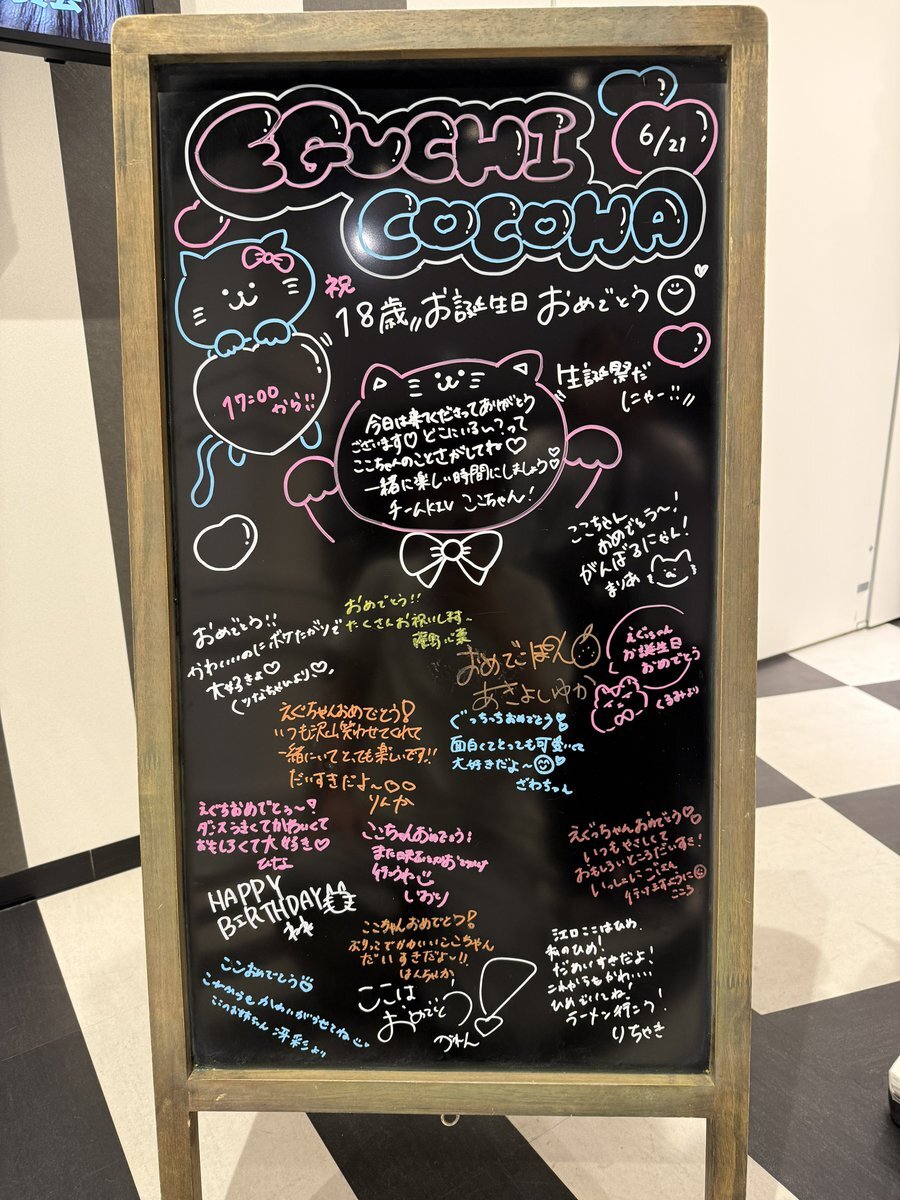 EGUCHI
COCOWA
6/21
祝
18歳 お誕生日 おめでとう
17:00
から!!
生誕祭だ
にゃー!!
今日は来てくださってありがとう
ございます♡ どこにいるん?って
ここちゃんのことさがしてね♡
一緒に楽しい時間にしましょう♡
チームKⅣ ここちゃん!
ここちゃん
おめでとう〜!
がんばるにゃん!
まりあ
おめでとう!!
かわいいのにボケたがりで
大好きよ♡
おめでとう!!
たくさんお祝いします〜
おめでごぽん
あきよしゆか
えぐちゃん
お誕生日
おめでとう
くるみより
えぐちゃんおめでとう!
いつも沢山笑わせてくれて
一緒にいてとても楽しいです!!
だいすきだよ〜
りんか
ぐっちっちおめでとう
面白くてとっても可愛いくて
大好きだよ〜
ざわちゃん
えぐちおめでとぅ〜
ダンスうまくてかわいくて
おもしろくて大好き♡
ひな
ここちゃんおめでとう!
行こうね
しおり
えぐっちゃんおめでとう
いつもやさしくて
おもしろいところだいすき!
いっしょにごはん
行けますように
こころ
HAPPY
BIRTHDAY
ここちゃんおめでとう!
ぶりっこでかわいいここちゃん
だいすきだよ〜!!
はんちゃか
江口ここはひめ、
私のひめ!
だあいすきだよ!
これからもかわ....
ひめでいてね!
ラーメン行こう!
りちゃき
ここおめでとう
これからもかわいがらせてね
ここのお姉ちゃん 冴彩より
ここは
おめでとう!